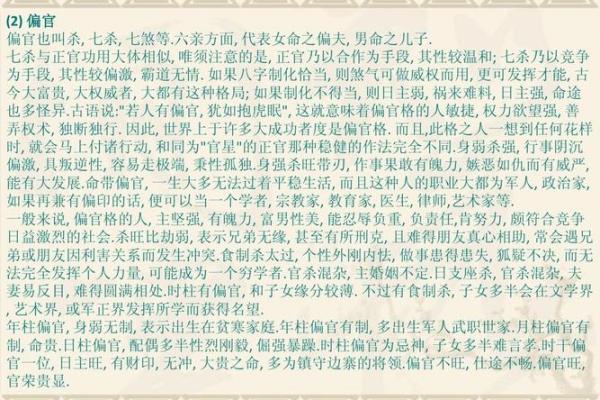 (2) 偏官
偏官也叫杀, 七杀, 七煞等.六亲方面, 代表女命之偏夫, 男命之儿子.
七杀与正官功用大体相似, 唯须注意的是, 正官乃以合作为手段, 其性较温和; 七杀乃以竞争
为手段, 其性较偏激, 霸道无情. 如果八字制化恰当, 则煞气可做威权而用, 更可发挥才能, 古
今大富贵, 大权威者, 大都有这种格局; 如果制化不得当, 则日主弱, 祸来难料, 日主强, 命途
也多怪异.古语说:"若人有偏官, 犹如抱虎眠", 这就意味着偏官格的人敏捷, 权力欲望强, 善
弄权术, 独断独行. 因此, 世界上于许多大成功者度是偏官格. 而且,此格之人一想到任何花样
时, 就会马上付诸行动, 和同为"官星"的正官那种稳健的作法完全不同.身弱杀强, 行事阴沉
偏激, 具叛逆性, 容易走极端, 秉性孤独.身强杀旺带刃, 作事果敢有魄力, 嫉恶如仇而有威严,
能有大发展.命带偏官, 一生大多无法过着平稳生活, 而且这种人的职业大都为军人, 政治家,
如果再兼有偏印的话, 便可以当一个学者, 宗教家, 教育家, 医生, 律师,艺术家等.
一般来说, 偏官格的人, 主坚强, 有魄力, 富男性美, 能忍辱负重, 负责任,肯努力, 颇符合竞争
日益激烈的社会.杀旺比劫弱, 表示兄弟无缘, 甚至有所刑克, 且难得朋友真心相助, 常会遇兄
弟或朋友因利害关系而发生冲突.食制杀太过, 个性外刚内怯, 做事患得患失, 狐疑不决, 而无
法完全发挥个人力量, 可能成为一个穷学者.官杀混杂, 主婚姻不定.日支座杀, 官杀混杂, 夫
妻易反目, 难得圆满相处.时柱有偏官, 和子女缘分较薄. 不过有食制杀, 子女多半会在文学界
, 艺术界, 或军正界发挥所学而获得名望.
年柱偏官, 身弱无制, 表示出生在贫寒家庭.年柱偏官有制, 多出生军人武职世家.月柱偏官有
制, 命贵.日柱偏官, 配偶多半性烈刚毅, 倔强暴躁.时柱偏官为忌神, 子女多半难言孝.时干偏
官一位, 日主旺, 有财印, 无冲, 大贵之命, 多为镇守边寨的将领.偏官不旺, 仕途不畅.偏官旺,
官荣贵显.